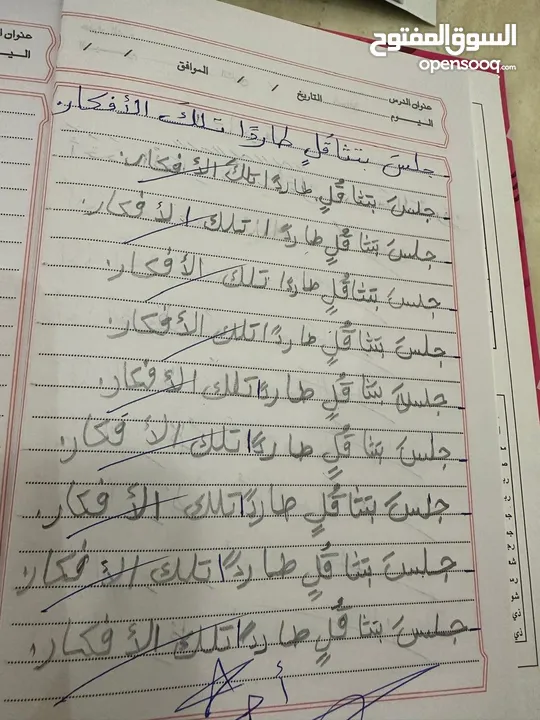 السوق المفتوح
opensooq.com
عنوان
اليـ
عنوان الدرس
اليـــوم
التاريخ / /
الموافق / /
جلسَ بتثاقُلٍ طاردًا تلكَ الأفكار.
جلسَ بتثاقُلٍ طاردًا تلكَ الأفكار.
جلسَ بتثاقُلٍ طاردًا تلك الأفكار.
جلسَ بتثاقُلٍ طاردًا تلك الأفكار.
جلسَ بتثاقُلٍ طاردًا تلك الأفكار.
جلسَ بتثاقُلٍ طاردًا تلك الأفكار.
جلسَ بتثاقُلٍ طاردًا تلك الأفكار.
جلسَ بتثاقُلٍ طاردًا تلك الأفكار.
جلسَ بتثاقُلٍ طاردًا تلك الأفكار.
جلسَ بتثاقُلٍ طاردًا تلك الأفكار.